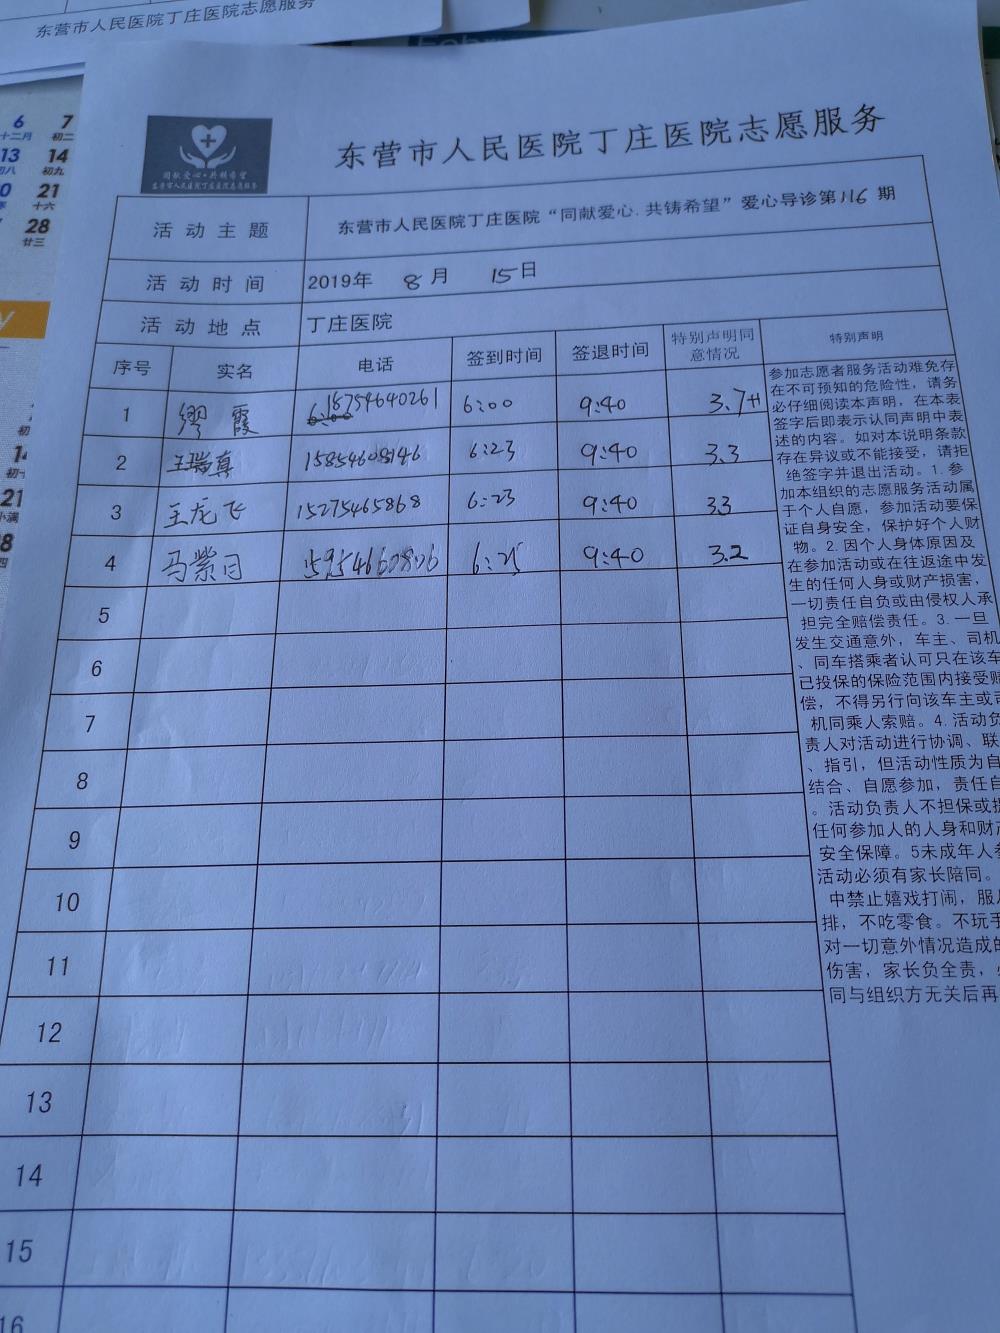 东营市人民医院丁庄医院志愿服务
6 7
十二月 初二
13 14
初八 初九
21
十六
28
廿三
21
小满
同献爱心·共铸希望
东营市人民医院丁庄医院志愿服务
东营市人民医院丁庄医院志愿服务
活动主题 东营市人民医院丁庄医院“同献爱心.共铸希望”爱心导诊第116期
活动时间 2019年 8月 15日
活动地点 丁庄医院
序号 实名 电话 签到时间 签退时间 特别声明同意情况 特别声明
1 缪霞 15754640261 6:00 9:40 3.7H
2 王瑞真 15854608146 6:23 9:40 3.3
3 王龙飞 15275465868 6:23 9:40 33
4 马紫 15954660806 6:25 9:40 3.2
5
6
7
8
9
10
11
12
13
14
15
16
参加志愿者服务活动难免存
在不可预知的危险性，请务
必仔细阅读本声明，在本表
签字后即表示认同声明中表
述的内容。如对本说明条款
存在异议或不能接受，请拒
绝签字并退出活动。1. 参
加本组织的志愿服务活动属
于个人自愿，参加活动要保
证自身安全，保护好个人财
物。2. 因个人身体原因及
在参加活动或在往返途中发
生的任何人身或财产损害，
一切责任自负或由侵权人承
担完全赔偿责任。3. 一旦
发生交通意外，车主、司机
、同车搭乘者认可只在该车
已投保的保险范围内接受赔
偿，不得另行向该车主或司
机同乘人索赔。4. 活动负
责人对活动进行协调、联
、指引，但活动性质为自
结合、自愿参加，责任自
。活动负责人不担保或提
任何参加人的人身和财产
安全保障。5未成年人参
活动必须有家长陪同。
中禁止嬉戏打闹，服从
排，不吃零食。不玩手
对一切意外情况造成的
伤害，家长负全责，
同与组织方无关后再